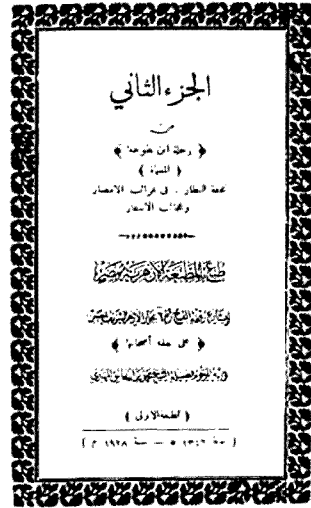 الجزء الثاني
من
﴿ رحلة ابن بطوطة ﴾
( المسماة )
تحفة النظار ، في غرائب الامصار
وعجائب الاسفار
طبع بالمطبعة الازهرية بمصر
﴿ على جهة أصحابها ﴾
( الطبعة الاولى )
( سنة ١٣٤٦ ه — سنة ١٩٢٨ م )